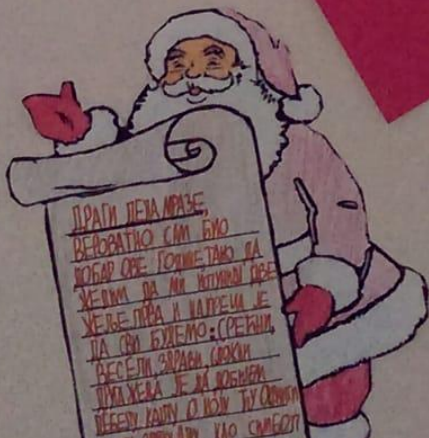 ДРАГИ ДЕДА МРАЗЕ,
ВЕРОВАТНО САМ БИО
ДОБАР ОВЕ ГОДИНЕ ТАКО ДА
ЖЕЛИМ ДА МИ ИСПУНИШ ДВЕ
ЖЕЉЕ ПРВА И НАЈВЕЋА ЈЕ
ДА СВИ БУДЕМО: СРЕЋНИ,
ВЕСЕЛИ, ЗДРАВИ, СЛОЖНИ
ДРУГА ЖЕЉА ЈЕ ДА ДОБИЈЕМ
КЊИГУ О
КАО СИМБОЛ